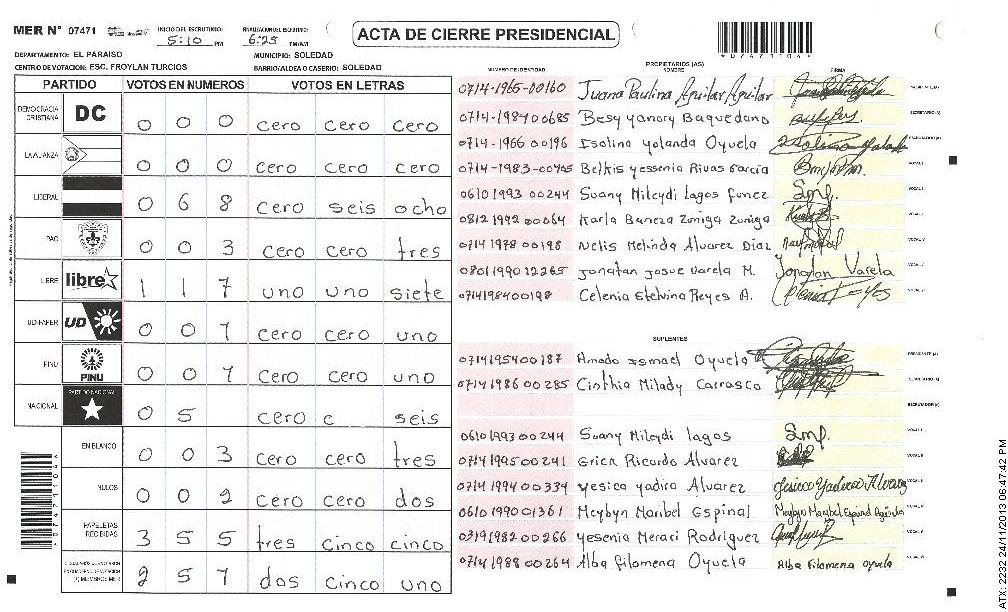 MER N° 07471
INICIO DEL ESCRUTINIO: 5:10 PM
FINALIZACION DEL ESCRUTINIO: 6:25 PM/AM
ACTA DE CIERRE PRESIDENCIAL
DEPARTAMENTO: EL PARAISO
MUNICIPIO: SOLEDAD
CENTRO DE VOTACION: ESC. FROYLAN TURCIOS
BARRIO/ALDEA O CASERIO: SOLEDAD
PARTIDO VOTOS EN NUMEROS VOTOS EN LETRAS
DEMOCRACIA CRISTIANA DC 0 0 0 cero cero cero
LA ALIANZA 0 0 0 cero cero cero
LIBERAL 0 6 8 cero seis ocho
PAC 0 0 3 cero cero tres
LIBRE libre 1 1 7 uno uno siete
UD-FAPER UD 0 0 1 cero cero uno
PINU PINU 0 0 1 cero cero uno
NACIONAL PARTIDO NACIONAL 0 5 cero c seis
EN BLANCO 0 0 3 cero cero tres
NULOS 0 0 2 cero cero dos
PAPELETAS RECIBIDAS 3 5 5 tres cinco cinco
2 5 1 dos cinco uno
NUMERO DE IDENTIDAD PROPIETARIOS (AS) NOMBRE FIRMA
0714-1965-00160 Juana Paulina Aguilar Aguilar
0714-1984 00685 Besy yanory Baquedano
0714-1966 00196 Isolina yolanda Oyuela
Belkis yessenia Rivas Garcia
0610 1993 00244 Suany Mileydi Lagos Funez
0812 1992 00064 Karla Baneza Zuniga Zuniga
0714 1978 00198 Nelis Melinda Alvarez Diaz
0801 1990 12265 Jonatan Josue Varela M. Jonatan Varela
0714198400198 Celenia Etelvina Reyes A.
SUPLENTES
0714195400187 Amado Ismael Oyuela
0714 1986 00285 Cinthia Milady Carrasco
0610 1993 00244 Suany Mileydi Lagos
0714 1995 00241 Erica Ricardo Alvarez
0714 1994 00334 yesica yadira Alvarez
0610 1990 01361 Meybyn Maribel Espinal
0319 1982 00266 yesenia Meraci Rodriguez
0714 1988 00264 Alba Filomena Oyuela Alba Filomena oyuela
ATX: 2232 24/11/2013 06:47:42 PM